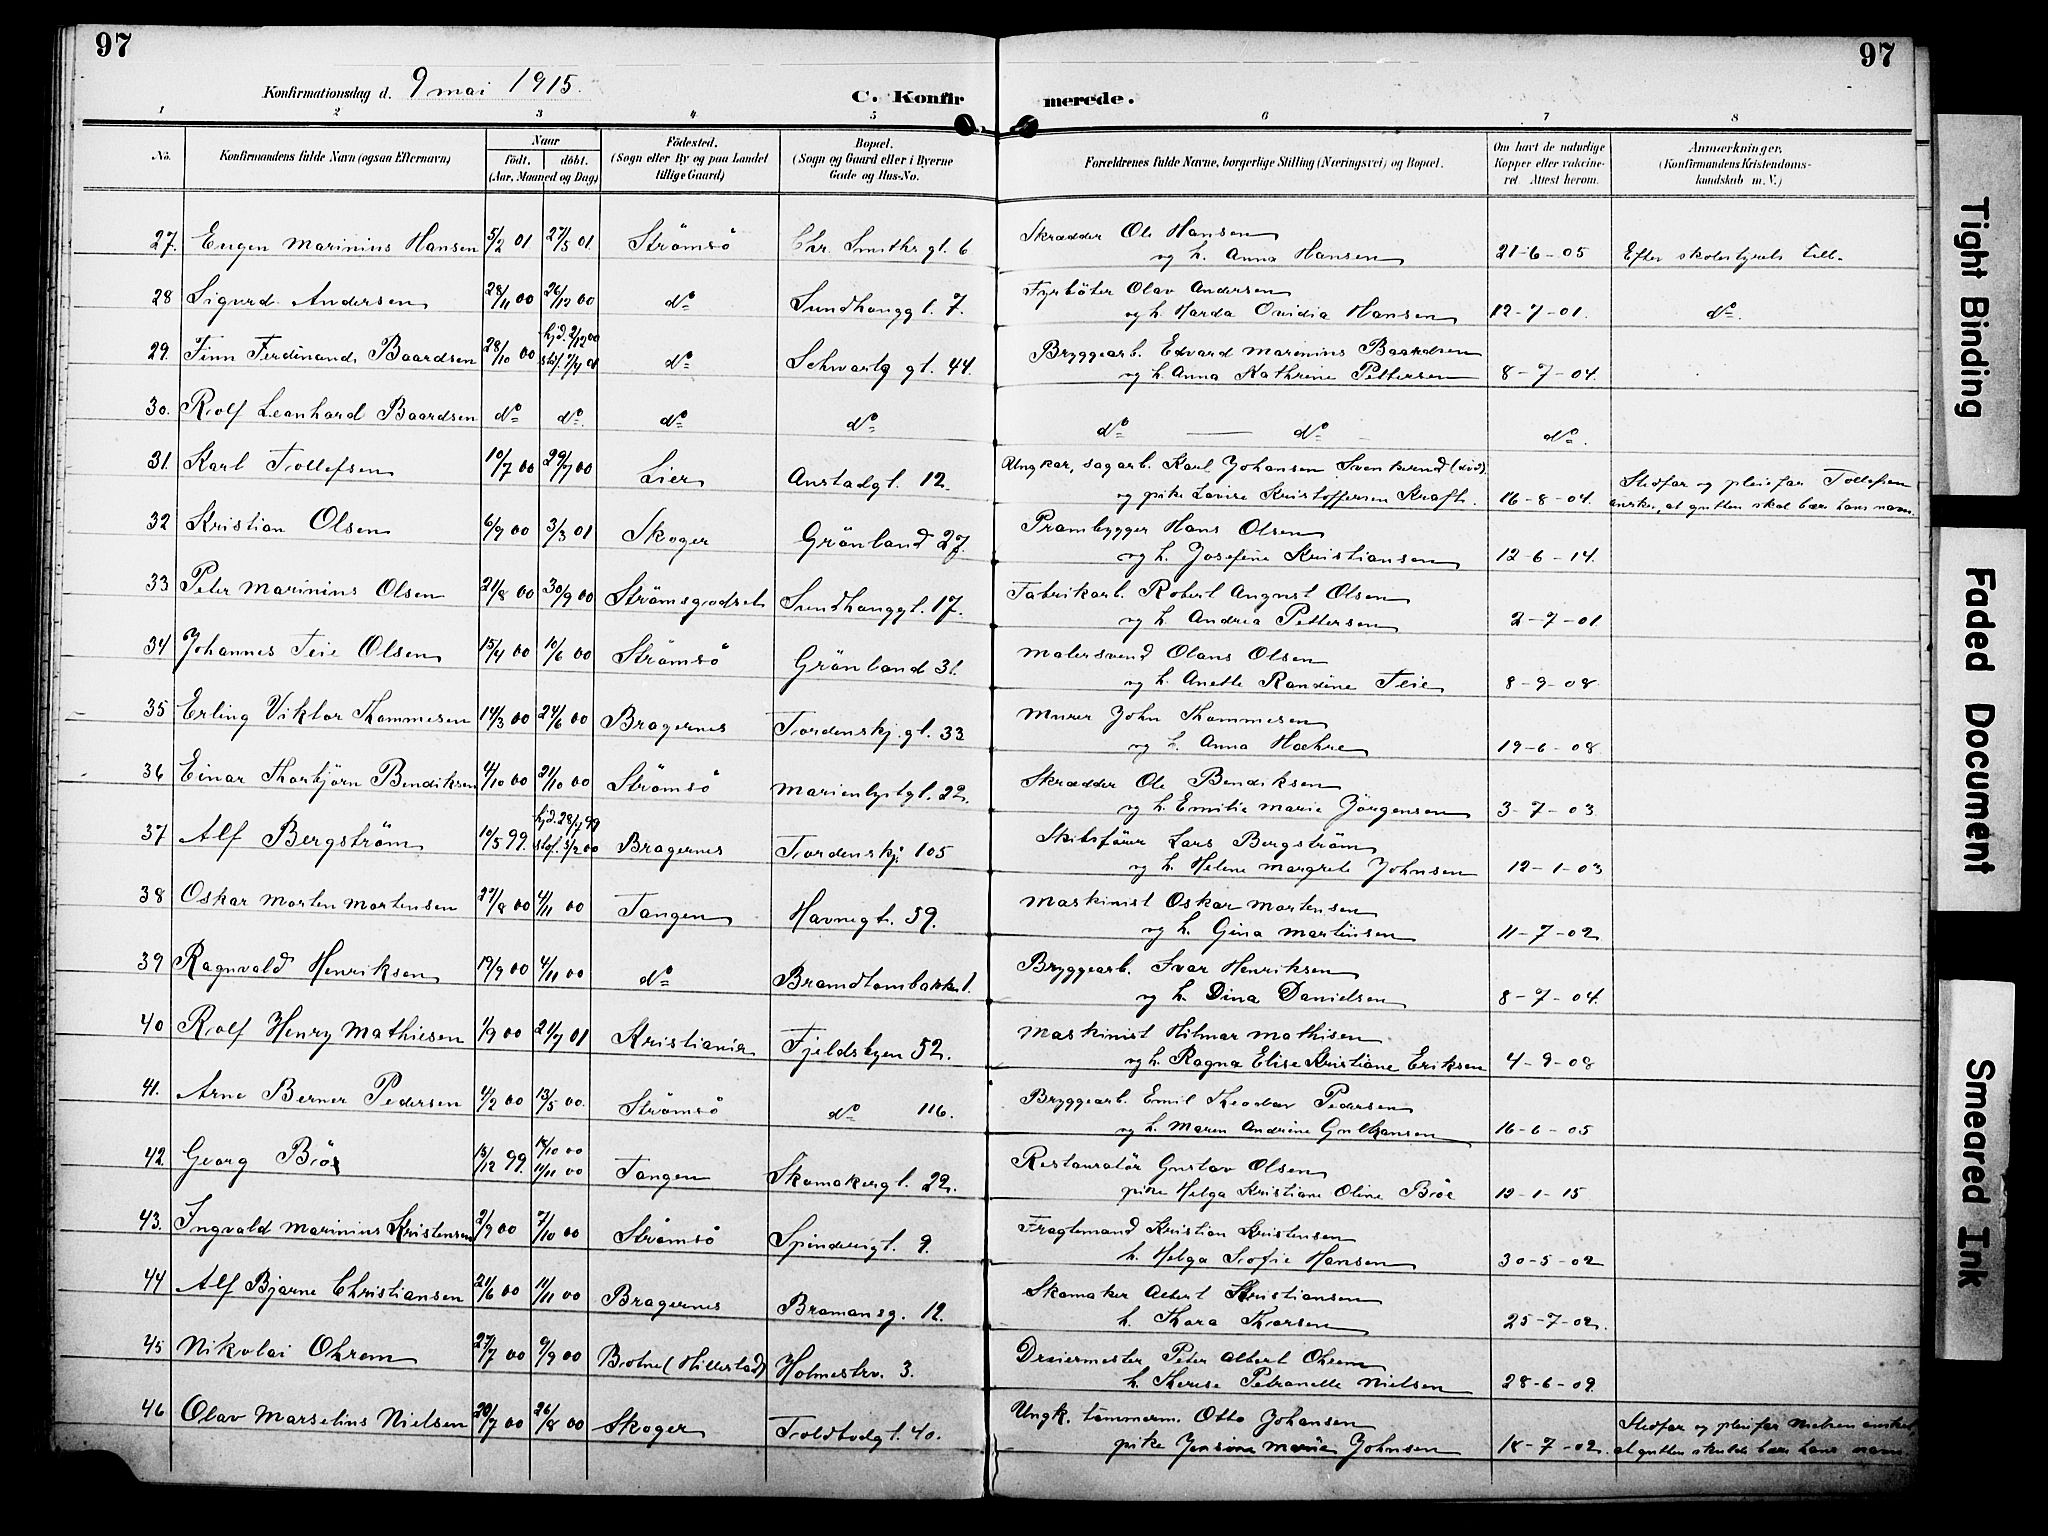 97
97
Konfirmationsdag d. 9 mai 1915.
C. Konfirmerede.
1 2 3 4 5 6 7 8
No. Konfirmandens fulde Navn (ogsaa Efternavn) Naar født. døbt. (Aar, Maaned og Dag) Fødested. (Sogn eller By og paa Landet tillige Gaard) Bopæl. (Sogn og Gaard eller i Byerne Gade og Hus-No. Forældrenes fulde Navne, borgerlige Stilling (Næringsvei) og Bopæl. Om havt de naturlige Kopper eller vakcineret. Attest herom. Anmærkninger. (Konfirmandens Kristendomskundskab m. V.)
27. Eugen Marinius Hansen 5/2 01 27/5 01. Strømsö Chr. Smithsgt. 6 Skrædder Ole Hansen
og h. Anna Hansen 21-6-05 Efter skolestyrets till.
28 Sigurd Andersen 28/11 00 26/12 00 do Sundhauggt. 7. Fyrböter Olav Andersen
og h. Harda Ovidia Hansen 12-7-01. do
29. Finn Ferdinand Baardsen 28/10 00 hjd. 2/12 00 do Schwartz gt. 44. Bryggearb. Edvard Marinius Baardsen
og h. Anna Kathrine Pettersen 8-7-04.
30. Rolf Leonhard Baardsen do do do do do — do do.
31. Karl Tollefsen 10/7 00 29/7 00 Lier Austadgt. 12. Ungkar, sagarb. Karl Johansen
og pike Lovise Kristoffersen Kraft. 16-8-04. Stedfar og pleiefar Tollefsen
ønsker, at gutten skal bære hans navn.
32 Kristian Olsen 6/9 00 3/3 01 Skoger Grönland 27. Prambygger Hans Olsen
og h. Josefine Kristiansen 12-6-14.
33 Peter Marinius Olsen 21/8 00 30/9 00 Strömsgodset Sundhauggt. 17. Fabrikarb. Robert August Olsen
og h. Andrea Pettersen 2-7-01
34 Johannes Teie Olsen 15/4 00 10/6 00 Strömsö Grönland 31. Malersvend Olaus Olsen
og h. Anette Randine Teie 8-9-08
35 Erling Viktor Thommesen 14/3 00 24/6 00 Bragernes Tordenskj. gt. 33 Murer John Thommesen
og h. Anna Hæhre 19-6-08
36 Einar Thorbjörn Bendiksen 4/10 00 21/10 00 Strömsö Marienlystgt. 22. Skrædder Ole Bendiksen
og h. Emilie Marie Jörgensen 3-7-03
37 Alf Bergström 10/5 99. hjd. 28/7 99 Bragernes Tordenskj. 105 Skibsförer Lars Bergström
og h. Helene Margrete Johnsen 12-1-03
38 Oskar Morten Mortensen 27/8 00 4/11 00 Tangen Havnegt. 59. Maskinist Oskar Mortensen
og h. Gina Martinsen 11-7-02
39 Ragnvald Henriksen 19/9 00 4/11 00 do Bryggearb. Ivar Henriksen
og h. Dina Danielsen 8-7-04.
40 Rolf Henry Mathiesen 1/9 00 21/7 01 Kristiania Fjeldsbyen 52. Maskinist Hilmar Mathisen
og h. Ragna Elise Kristiane Eriksen 4-9-08
41. Arne Berner Pedersen 1/2 00 13/5 00. Strömsö do 116. Bryggearb. Emil Theodor Pedersen
og h. Maren Andrine Gulhansen 16-6-05
42. Georg Biöe 13/12 99. 14/10 00 11/11 00 Tangen Skomakergt. 22. Restauratör Gustav Olsen
pike Helga Kristiane Oline Biöe 12-1-15
43. Ingvald Marinius Kristensen 2/9 00 7/10 00 Strömsö Spinderigt. 9. Fragtemand Kristian Kristensen
h. Helga Sofie Hansen 30-5-02
44 Alf Bjarne Christiansen 21/6 00 11/11 00 Bragernes Bromansg. 12. Skomaker Albert Kristiansen
h. Thora Thorsen 25-7-02.
45 Nikolai Ohrem 27/7 00 9/9 00 Botne (Hillestad) Holmestrv. 3. Dreiermester Peter Albert Ohrem
h. Therese Petronelle Nielsen 28-6-09.
46 Olav Marselius Nielsen 20/7 00 26/8 00 Skoger Toldbodgt. 40. Ungk. tømmerm. Otto Johansen
pike Jensine Marie Johnsen 18-7-02. Stedfar og pleiefar Nielsen ønsket,
at gutten skulde bære hans navn.
Tight Binding
Faded Document
Smeared Ink